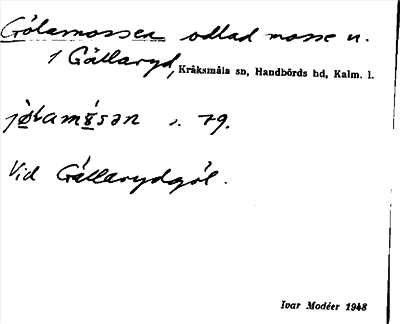 Gölamossen odlad mosse n.
i Gällaryd, Kråksmåla sn, Handbörds hd, Kalm. l.
s. 79.
Vid Gällarydgöl.
Ivar Modéer 1948